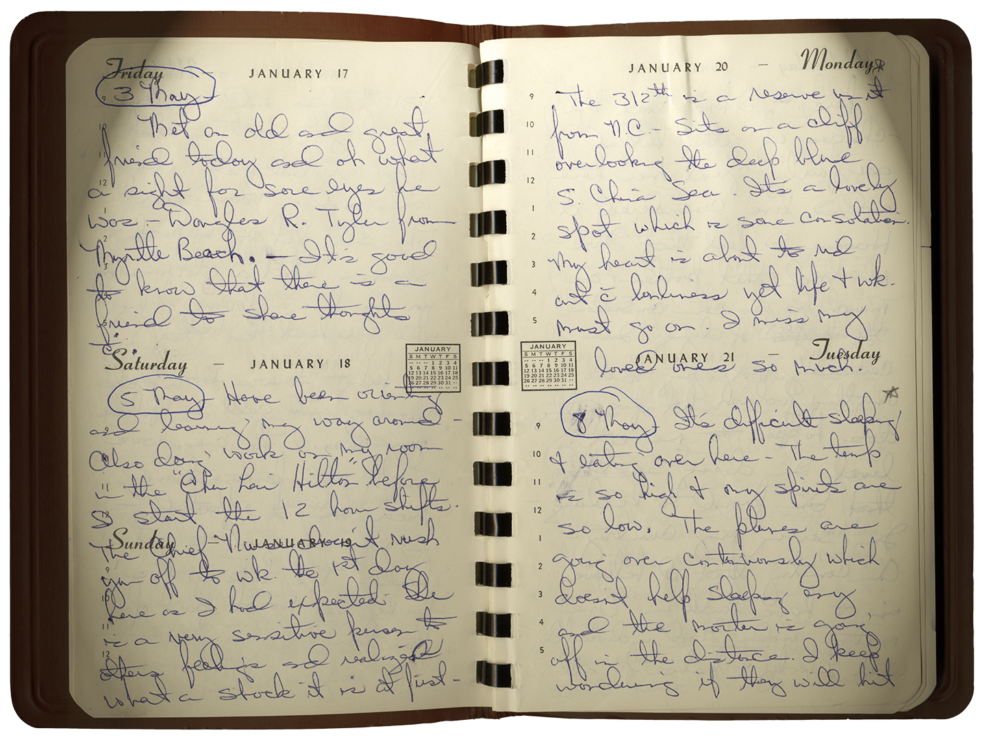 Friday — JANUARY 17
3 May -
Met an old and great
friend today and oh what
a sight for sore eyes he
was - Douglas R. Tyler from
Myrtle Beach. - It's good
to know that there is a
friend to share thoughts
Saturday — JANUARY 18
JANUARY
S M T W T F S
5 May Have been orienting
and learning my way around -
Also doing work on my room
in the "Chu Lai Hilton" before
I start the 12 hour shifts.
Sunday JANUARY 19
The Chief Nurse doesn't rush
you off to wk. the 1st day
here as I had expected. She
is a very sensitive person to
others feelings and realizes
what a shock it is at first -
JANUARY 20 — Monday
The 312th is a reserve unit
from N.C. - Sits on a cliff
overlooking the deep blue
S. China Sea. It's a lovely
spot which is some consolation.
My heart is about to
out c̄ loneliness yet life + wk.
must go on. I miss my
JANUARY 21 Tuesday
loved ones so much.
JANUARY
S M T W T F S
8 May It's difficult sleeping
+ eating over here - The temp
is so high + my spirits are
so low. The planes are
going over continuously which
doesn't help sleeping any
and the mortar is going
off in the distance. I keep
wondering if they will hit